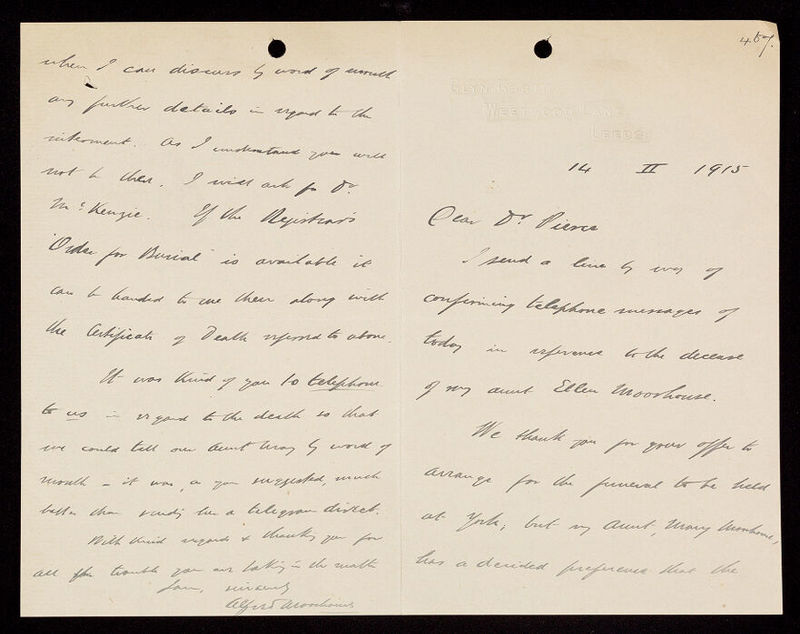 457.
GLYN
WEETWOOD LANE
LEEDS
14 II 1915
Dear Dr Pierce
I send a line by way of
confirming telephone messages of
today in reference to the decease
of my aunt Ellen Moorhouse.
We thank you for your offer to
arrange for the funeral to be held
at York; but my Aunt, Mary Moorhouse,
has a decided preference that the
when I can discuss by word of mouth
any further details in regard to the
interment. As I understand you will
not be there, I will ask for Dr
McKenzie. If the Registrar's
"Order for Burial" is available it
can be handed to me then along with
the Certificate of Death referred to above.
It was kind of you to telephone
to us in regard to the death so that
we could tell our Aunt Mary by word of
mouth - it was, as you suggested, much
better than sending her a telegram direct.
With kind regards & thanking you for
all the trouble you are taking in the matter
I am, sincerely
Alfred Moorhouse